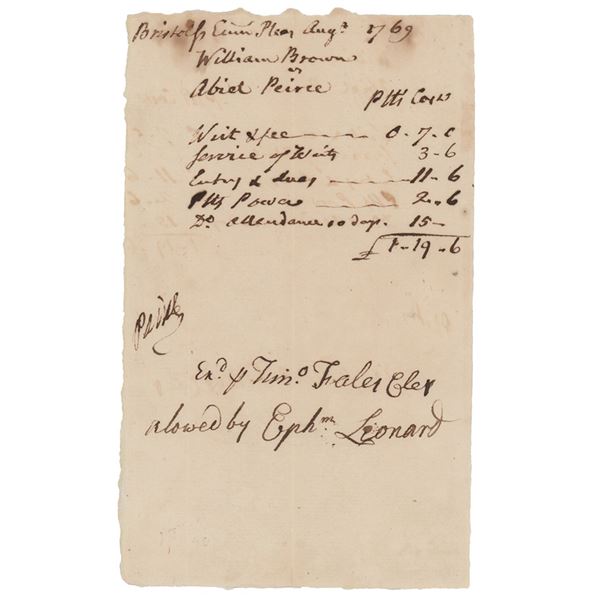 Bristol ss Com Pleas Augt 1769
William Brown
vs
Abiel Peirce
Plts Costs
Writ & fee 0-7-0
Service of Writ 3-6
Entry & duty 11-6
Plts Power 2-6
Do attendance 10 days. 15-
£1-19-6
Exd p Timo Fales Cler
alowed by Ephm Leonard